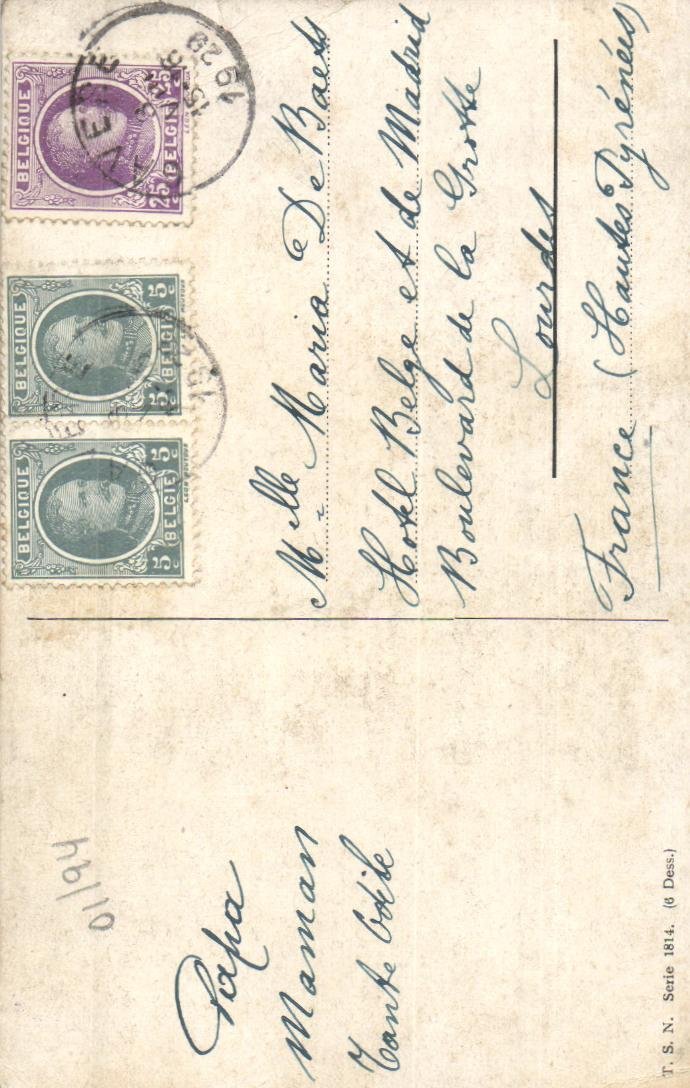 Papa
Maman
Tante Odile
Mlle Maria De Baets
Hotel Belge et de Madrid
Boulevard de la Grotte
Lourdes
France (Hautes Pyrénées)
BELGIQUE
25c 25c
BELGIE
BELGIQUE
5c 5c
BELGIE
BELGIQUE
5c 5c
BELGIE
01/94
T. S. N. Serie 1814. (6 Dess.)